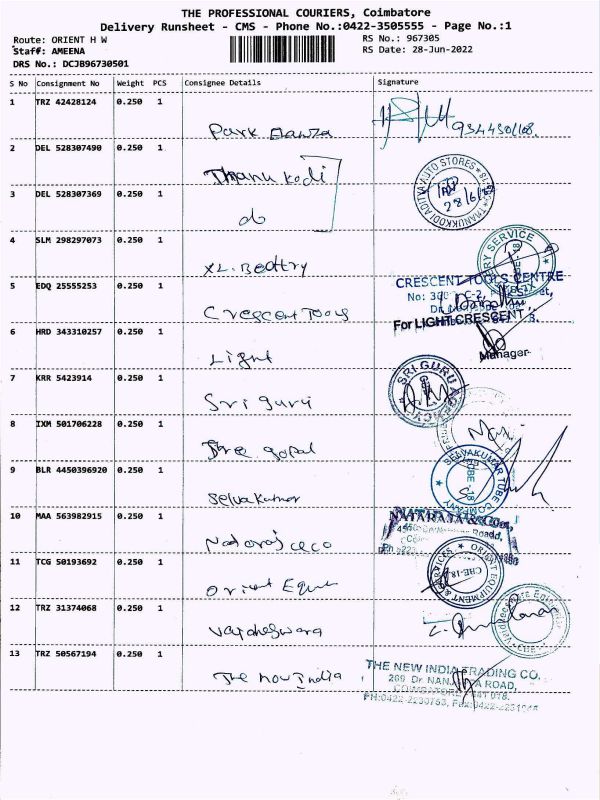 THE PROFESSIONAL COURIERS, Coimbatore
Delivery Runsheet - CMS - Phone No.:0422-3505555 - Page No.:1
Route: ORIENT H W
RS No.: 967305
Staff: AMEENA
RS Date: 28-Jun-2022
DRS No.: DCJB96730501
S No Consignment No Weight PCS Consignee Details Signature
1 TRZ 42428124 0.250 1
Park
2 DEL 528307490 0.250 1
Dhanu Kodi
THANUKKODI ADITYA AUTO STORES
28/6/
3 DEL 528307369 0.250 1
do
4 SLM 298297073 0.250 1
XL. Battry
SERVICE
5 EDQ 25555253 0.250 1
Crescent Tools
CRESCENT TOOLS CENTRE
For LIGHT CRESCENT
6 HRD 343310257 0.250 1
Light
Manager
7 KRR 5423914 0.250 1
Sri Guru
SRI GURU AGENCY
8 IXM 501706228 0.250 1
Shree gopal
9 BLR 4450396920 0.250 1
Selvakumar
SELVAKUMAR TUBE COMPANY
10 MAA 563982915 0.250 1
Nataraj &co
NATARAJA & Co.,
11 TCG 50193692 0.250 1
Orient Equi
ORIENT EQUIPMENT & SERVICES
CBE-18
12 TRZ 31374068 0.250 1
13 TRZ 50567194 0.250 1
The New India
THE NEW INDIA TRADING CO.
269 Dr NANJAPPA ROAD,
COIMBATORE - 641 018.